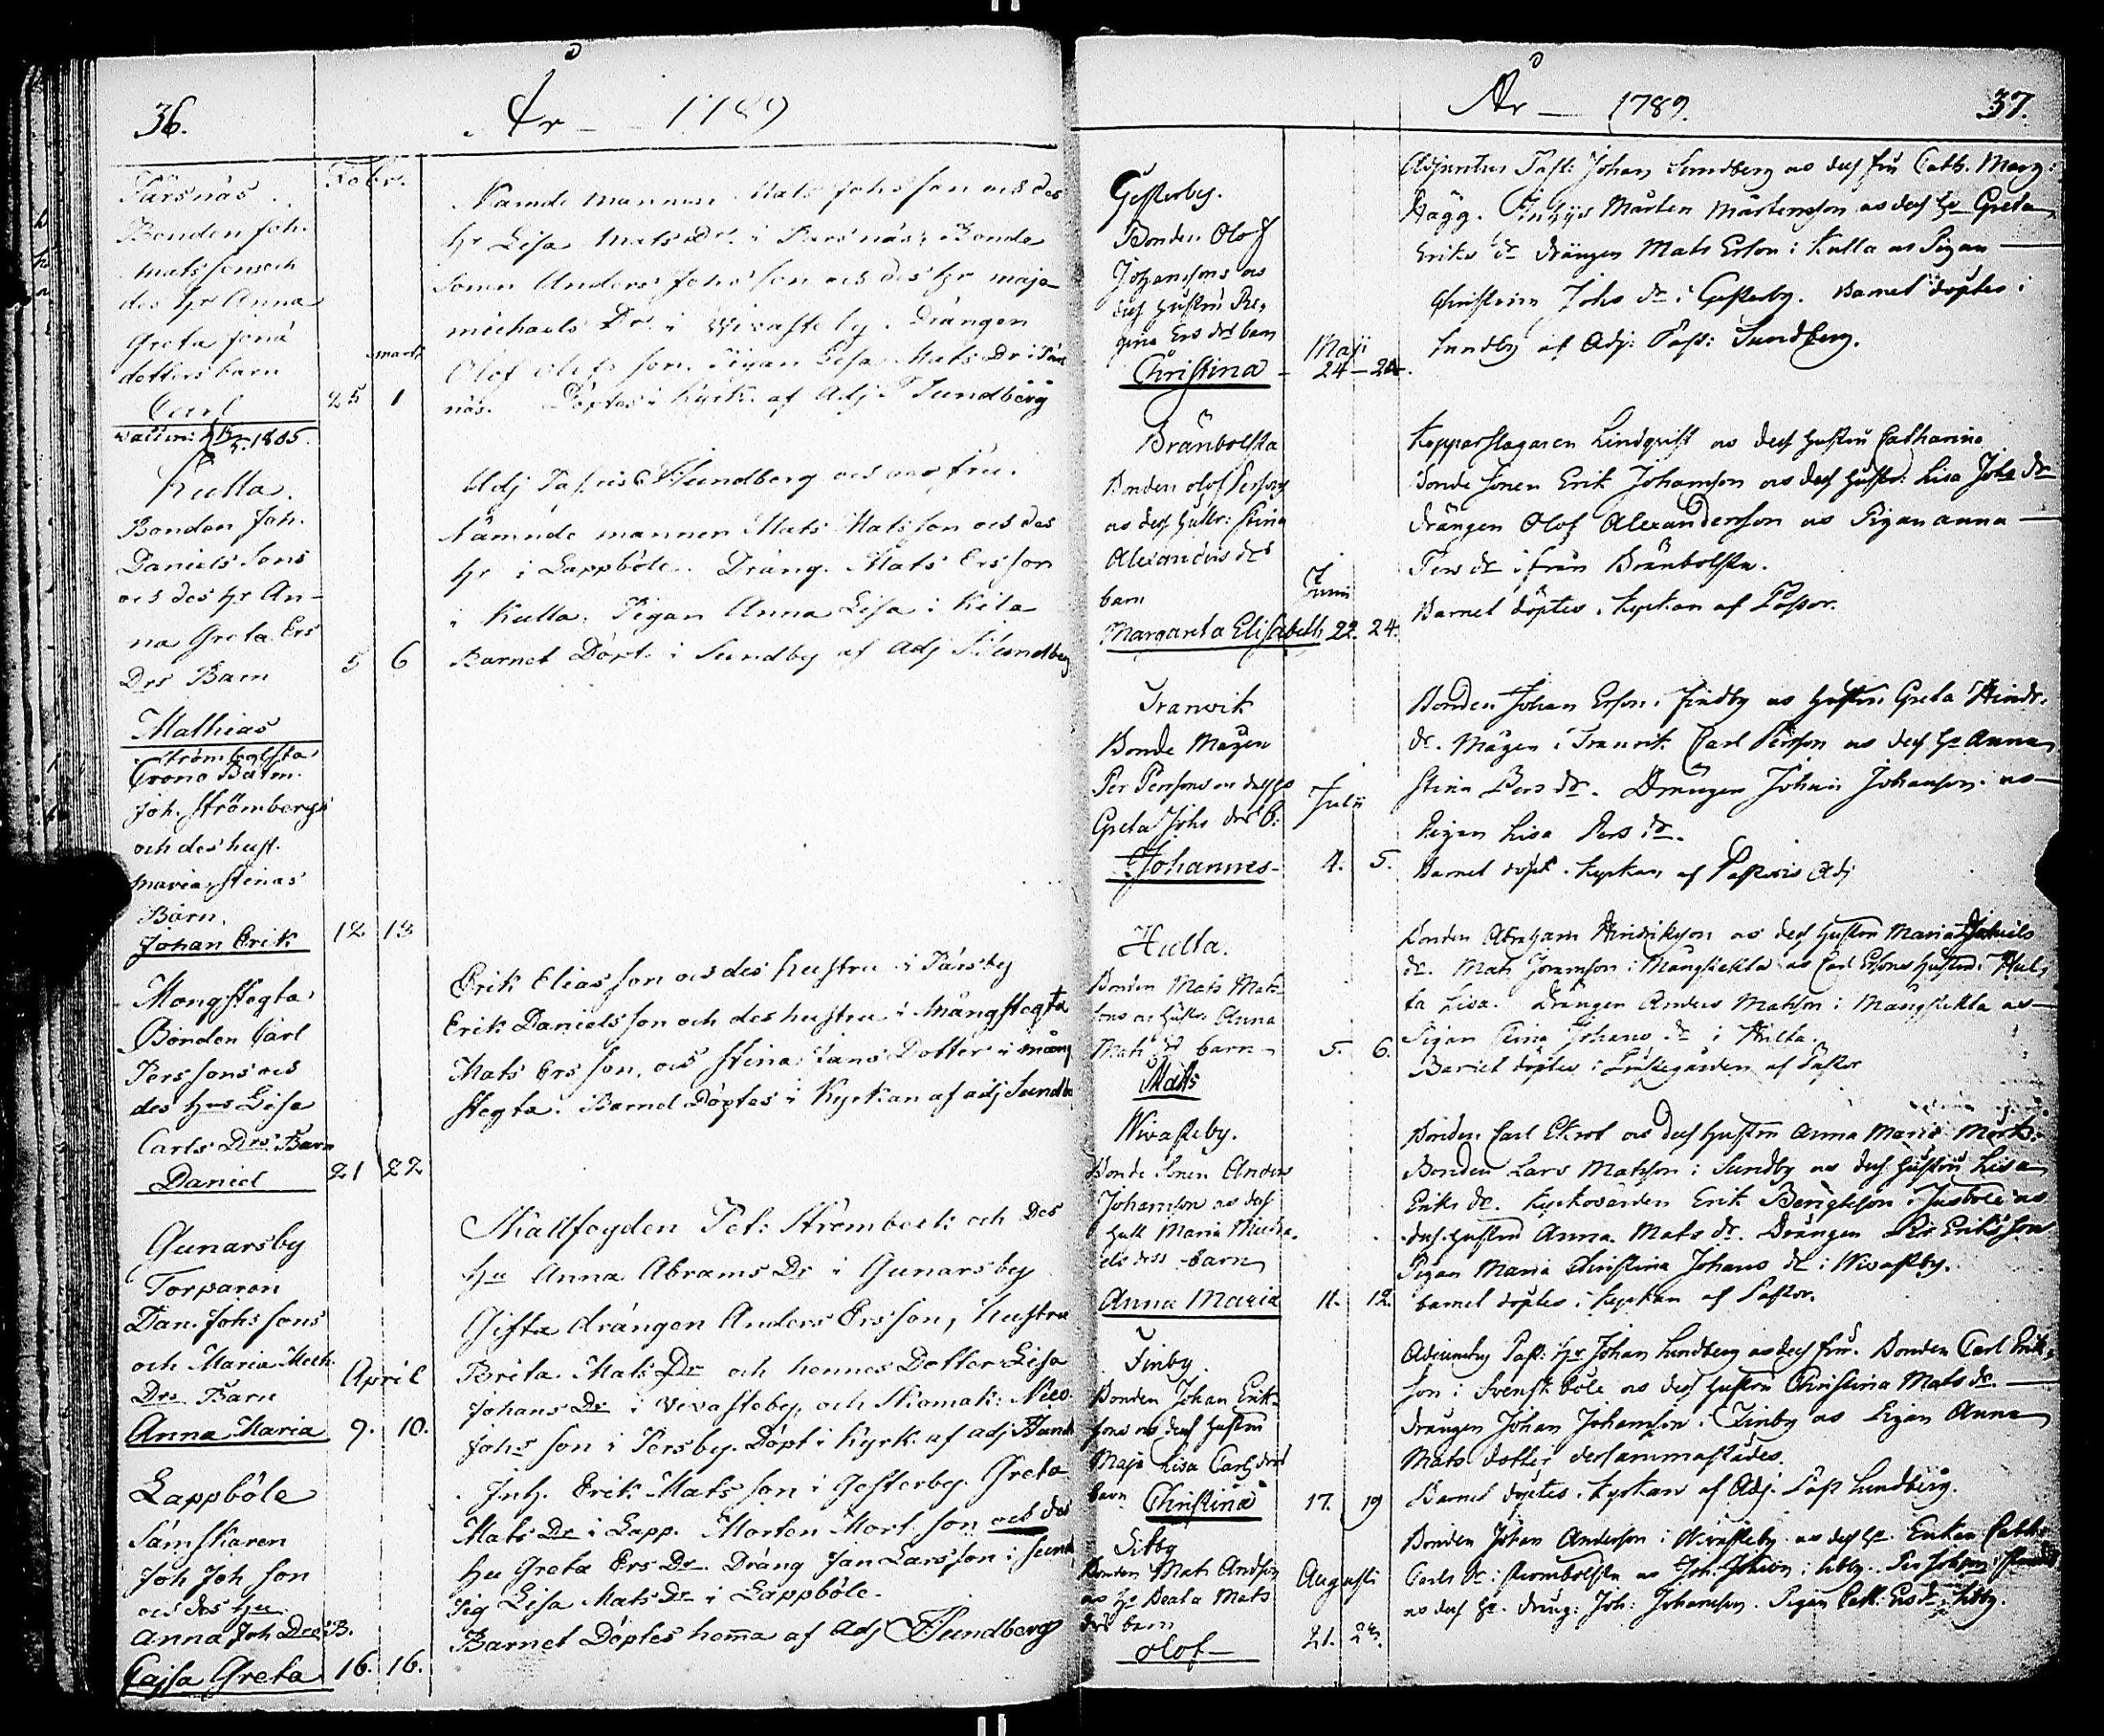 36.
År — 1789
Febr.
Tärsnäs
Bonden Joh.
Mats sons och
des Hr Anna
Greta Jona
dotters barn
mart.
Carl
25 1
Namde mannen Mats Johs son och des
Hr Lisa Mats Dr. i Parsnäs, Bonde
Sonen Anders Johs son och des Hr maja
michaels Dr. i Wivasteby. Drängen
Olof Olofs son. Pigan Lisa Mats Dr i Pärs
näs. Döptes i Kyrk. af Adj Sundberg
1805.
Kulla.
Bonden Joh.
Daniels Sons
och des Hr An-
na Greta Ers
Drs Barn
5 6
Mathias
Adj Sundberg och fru.
Nämnde mannen Mats Mats son och des
Hr i Lappböle. Dräng. Mats Ersson
i Kulla. Pigan Anna Lisa i Kila
Barnet Döpt. i Sundby af Adj Sundberg
Strömbolsta
Crono Båtm.
Joh. Strömbergs
och des hust.
maria Stinas
Barn.
Johan Erik 12 13
Mongstegta
Bonden Carl
Pers sons och
des Hrs Lisa
Carls Drs Barn
Daniel 21 22
Erik Elias son och des hustru i Pärsby
Erik Daniels son och des hustru i Mångstegta
Mats Ers son, och Stina Jans Dotter i mång
stegta. Barnet Döptes i Kyrkan af adj Sundb
Gunarsby
Torparen
Dan. Johs sons
och Maria Mich.
Drs Barn
April
Anna Maria 9. 10.
Skallfogden Pet: Strömbeck och Des
Hu Anna Abrams Dr i Gunarsby
Gifta drängen Anders Ersson, hustru
Brita Mats Dr och hennes Dotter Lisa
Johans Dr i Vivasteby, och Skomak: Nico
Johs son i Persby. Döpt i Kyrk. af adj Sund
Lappböle
Sämskaren
Joh Joh son
och des Hu
Anna Joh Drs B.
Cajsa Greta 16. 16.
Inh. Erik Mats son i Gesterby. Greta
Mats Dr i Lapp. Morten Mort. son och des
Hu Greta Ers Dr. Dräng Jan Larsson i Sund
Pig Lisa Mats Dr i Lappböle.
Barnet Döptes hem̄a af Adj Sundberg
År — 1789.
37.
Gesterby.
Bonden Olof
Johansons os
dess Hustru Re,
gina Ers drs barn
Maji
Christina 24 — 24.
Adjunctus Past: Johan Sundberg os dess fru Cath. Marg:
Hägg. Inhys Mårten Mårtensson os dess Hr Greta
Eriks dr drängen Mats Erson i Kulla os Pigan —
Christina Johs dr i Gesterby. Barnet döptes i
Sundby af Adj: Past: Sundberg.
Bränbolsta
Bonden Olof Persons
os dess Hustr: Stina
Alexanders drs
barn
Junii
Margareta Elisabeth 22. 24.
Kopparslagaren Lindqvist os dess Hustru Catharina
Bonde Sonen Erik Johanson os dess Hustr: Lisa Johs dr
drängen Olof Alexanderson os Pigan anna —
Pers dr ifrån Bränbolsta.
Barnet döptes i Kyrkan af Pastor.
Tranvik
Bonde Mågen
Per Persons os dess Hr
Greta Johs drs B:
Julii
Johannes 4. 5.
Bonden Johan Erson i Finby os Hustru Greta Hindr.
dr. Mågen i Tranvik Carl Person os dess Hr Anna
Stina Pers dr. Drängen Johan Johanson os —
Pigan Lisa Pers dr.
Barnet döpt i Kyrkan af Pastoris Adj
Hulta.
Bonden Mats Mats-
sons os Hustr: Anna
Mats drs barn 5. 6.
Mats
Bonden Abraham Hindrikson os dess Hustru Maria Daniels
dr. Mats Joranson i Mångstekta os Carl Ersons Hustru Hul,
ta Lisa. Drängen Anders Matsson i Mangstekta os —
Pigan Stina Johans dr i Hulta.
Barnet döptes i Prästegården af Pastor
Wivasteby.
Bonde Sonen Anders
Johanson os dess
Hust Maria Micha,
els drs barn
Anna Maria 11. 12.
Bonden Carl Ekrot os dess Hustru Anna Maria Mårts.
Bonden Lars Matsson i Sundby os dess Hustru Lisa
Eriks dr. Kyrkovärden Erik Bengtsson i Jusböle os
dess Hustru Anna Mats dr. Drängen Per Eriksson
Pigan Maria Christina Johans dr i Wivasteby.
barnet döptes i Kyrkan af Pastor.
Finby.
Bonden Johan Erik-
sons os dess Hustru
Maja Lisa Carls drs
barn Christina 17. 19
Adjunctus Past: Hr Johan Sundberg os dess fru. Bonden Carl Erik,
son i Svenskböle os dess Hustru Christina Mats dr. —
drängen Johan Johanson i Finby os Pigan Anna
Mats dotter dersammastädes.
Barnet döptes i Kyrkan af Adj. Past Sundberg.
Sitby
Bonden Mats Andson
os Hr Beata Mats
drs barn
Augusti
Olof 21. 23.
Bonden Johan Anderson i Wivasteby os dess Hr. Enkan Cath:
Carls dr i Strömbolsta os Joh. i Sitby. Per Johson
os dess Hr. Dräng: Joh: Johanson. Pigan Cath: Ers dr i Sitby.